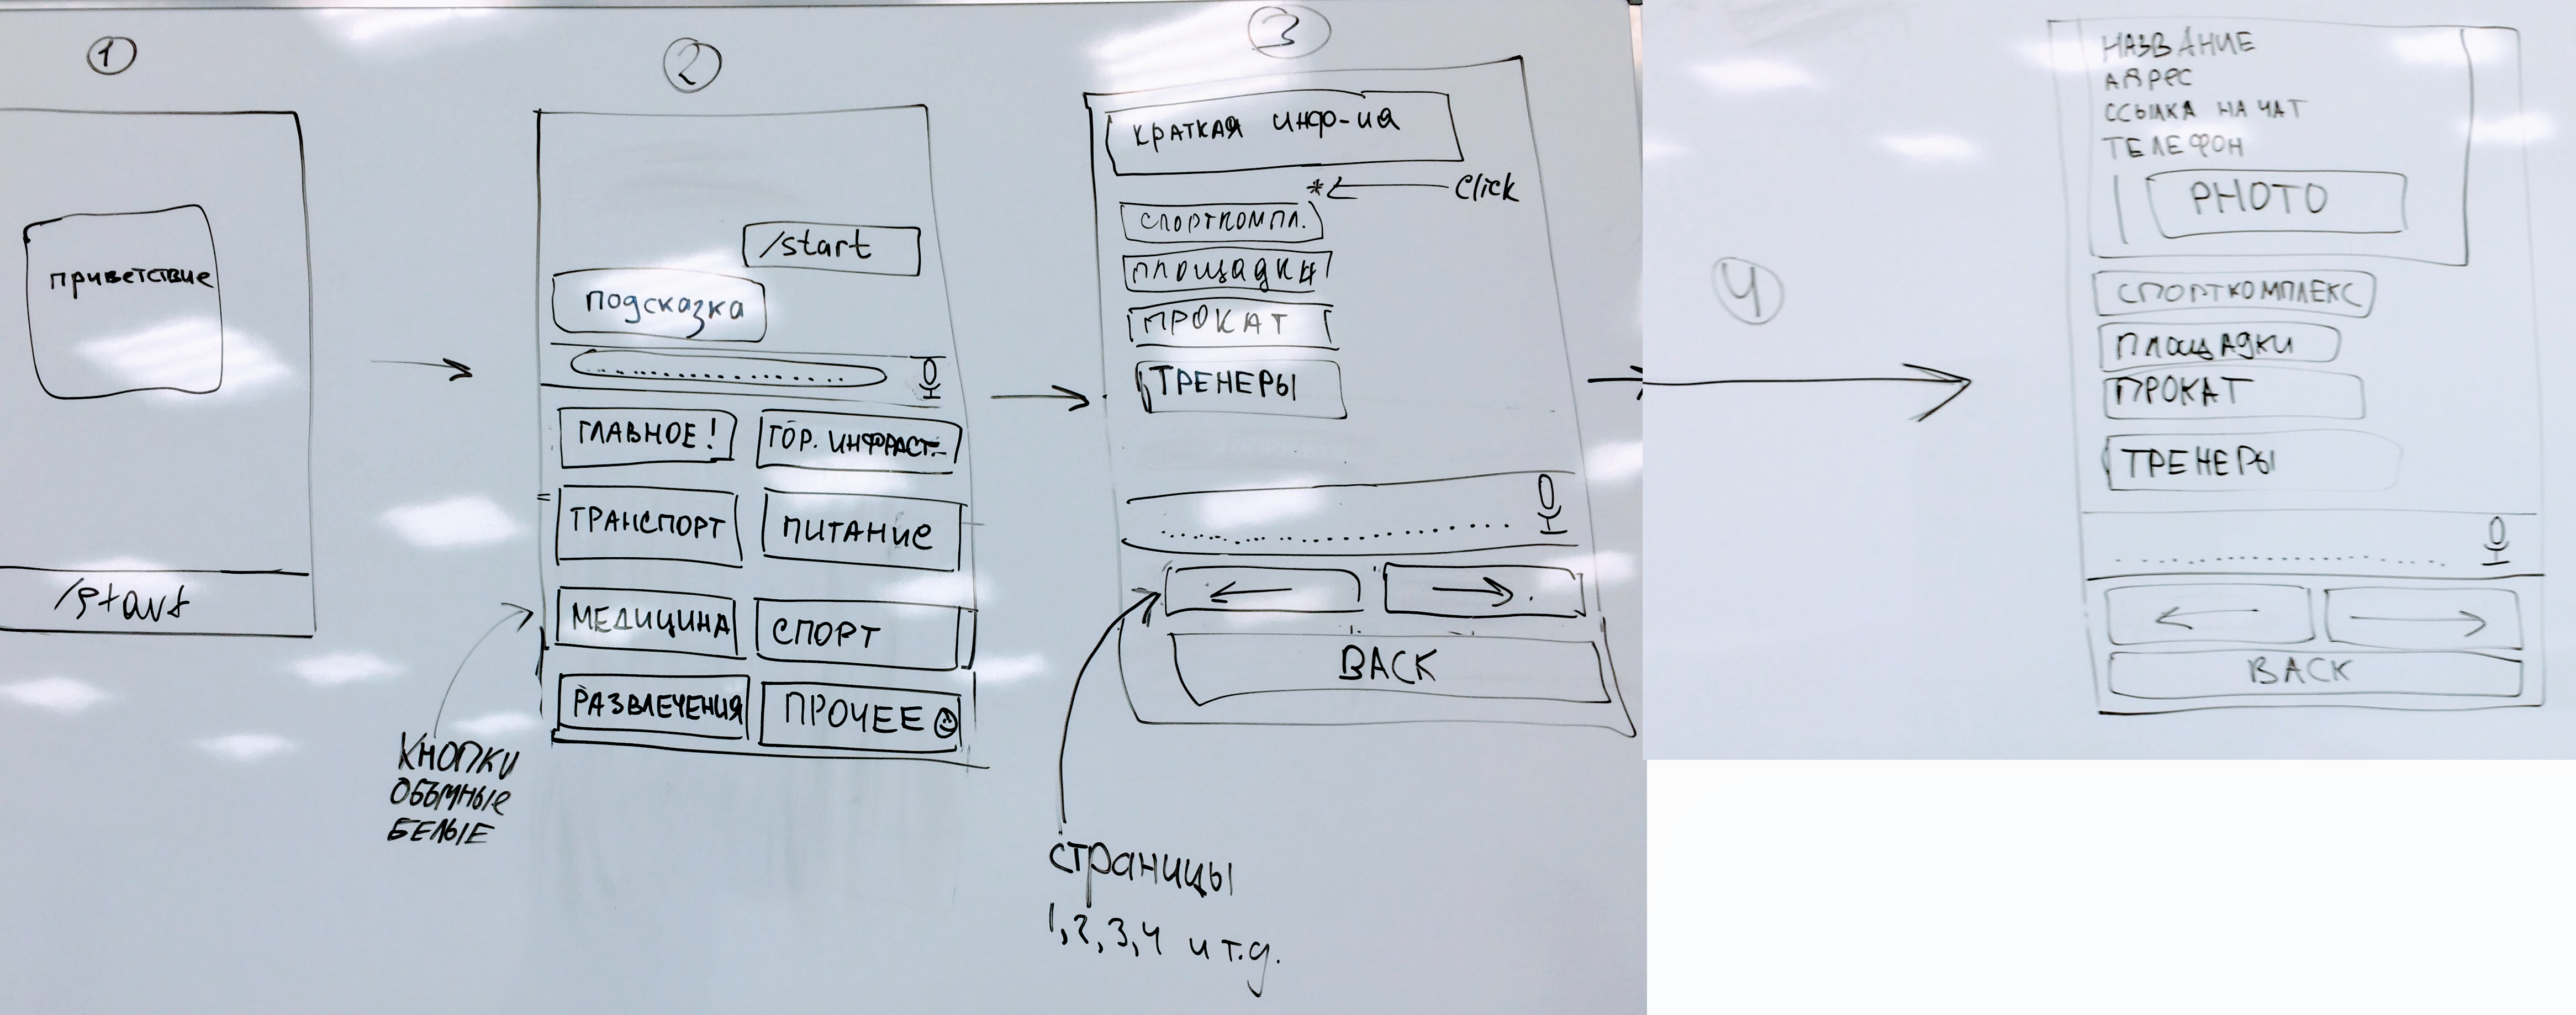 1
приветствие
/start
2
/start
подсказка
ГЛАВНОЕ! ГОР. ИНФРАСТ.
ТРАНСПОРТ ПИТАНИЕ
МЕДИЦИНА СПОРТ
РАЗВЛЕЧЕНИЯ ПРОЧЕЕ
КНОПКИ
ОБЪМНЫЕ
БЕЛЫЕ
3
КРАТКАЯ ИНФ-ИА
* Click
СПОРТКОМПЛ.
ПЛОЩАДКИ
ПРОКАТ
ТРЕНЕРЫ
BACK
страницы
1,2,3,4 и т.д.
4
НАЗВАНИЕ
АДРЕС
ССЫЛКА НА ЧАТ
ТЕЛЕФОН
PHOTO
СПОРТКОМПЛЕКС
ПЛОЩАДКИ
ПРОКАТ
ТРЕНЕРЫ
BACK